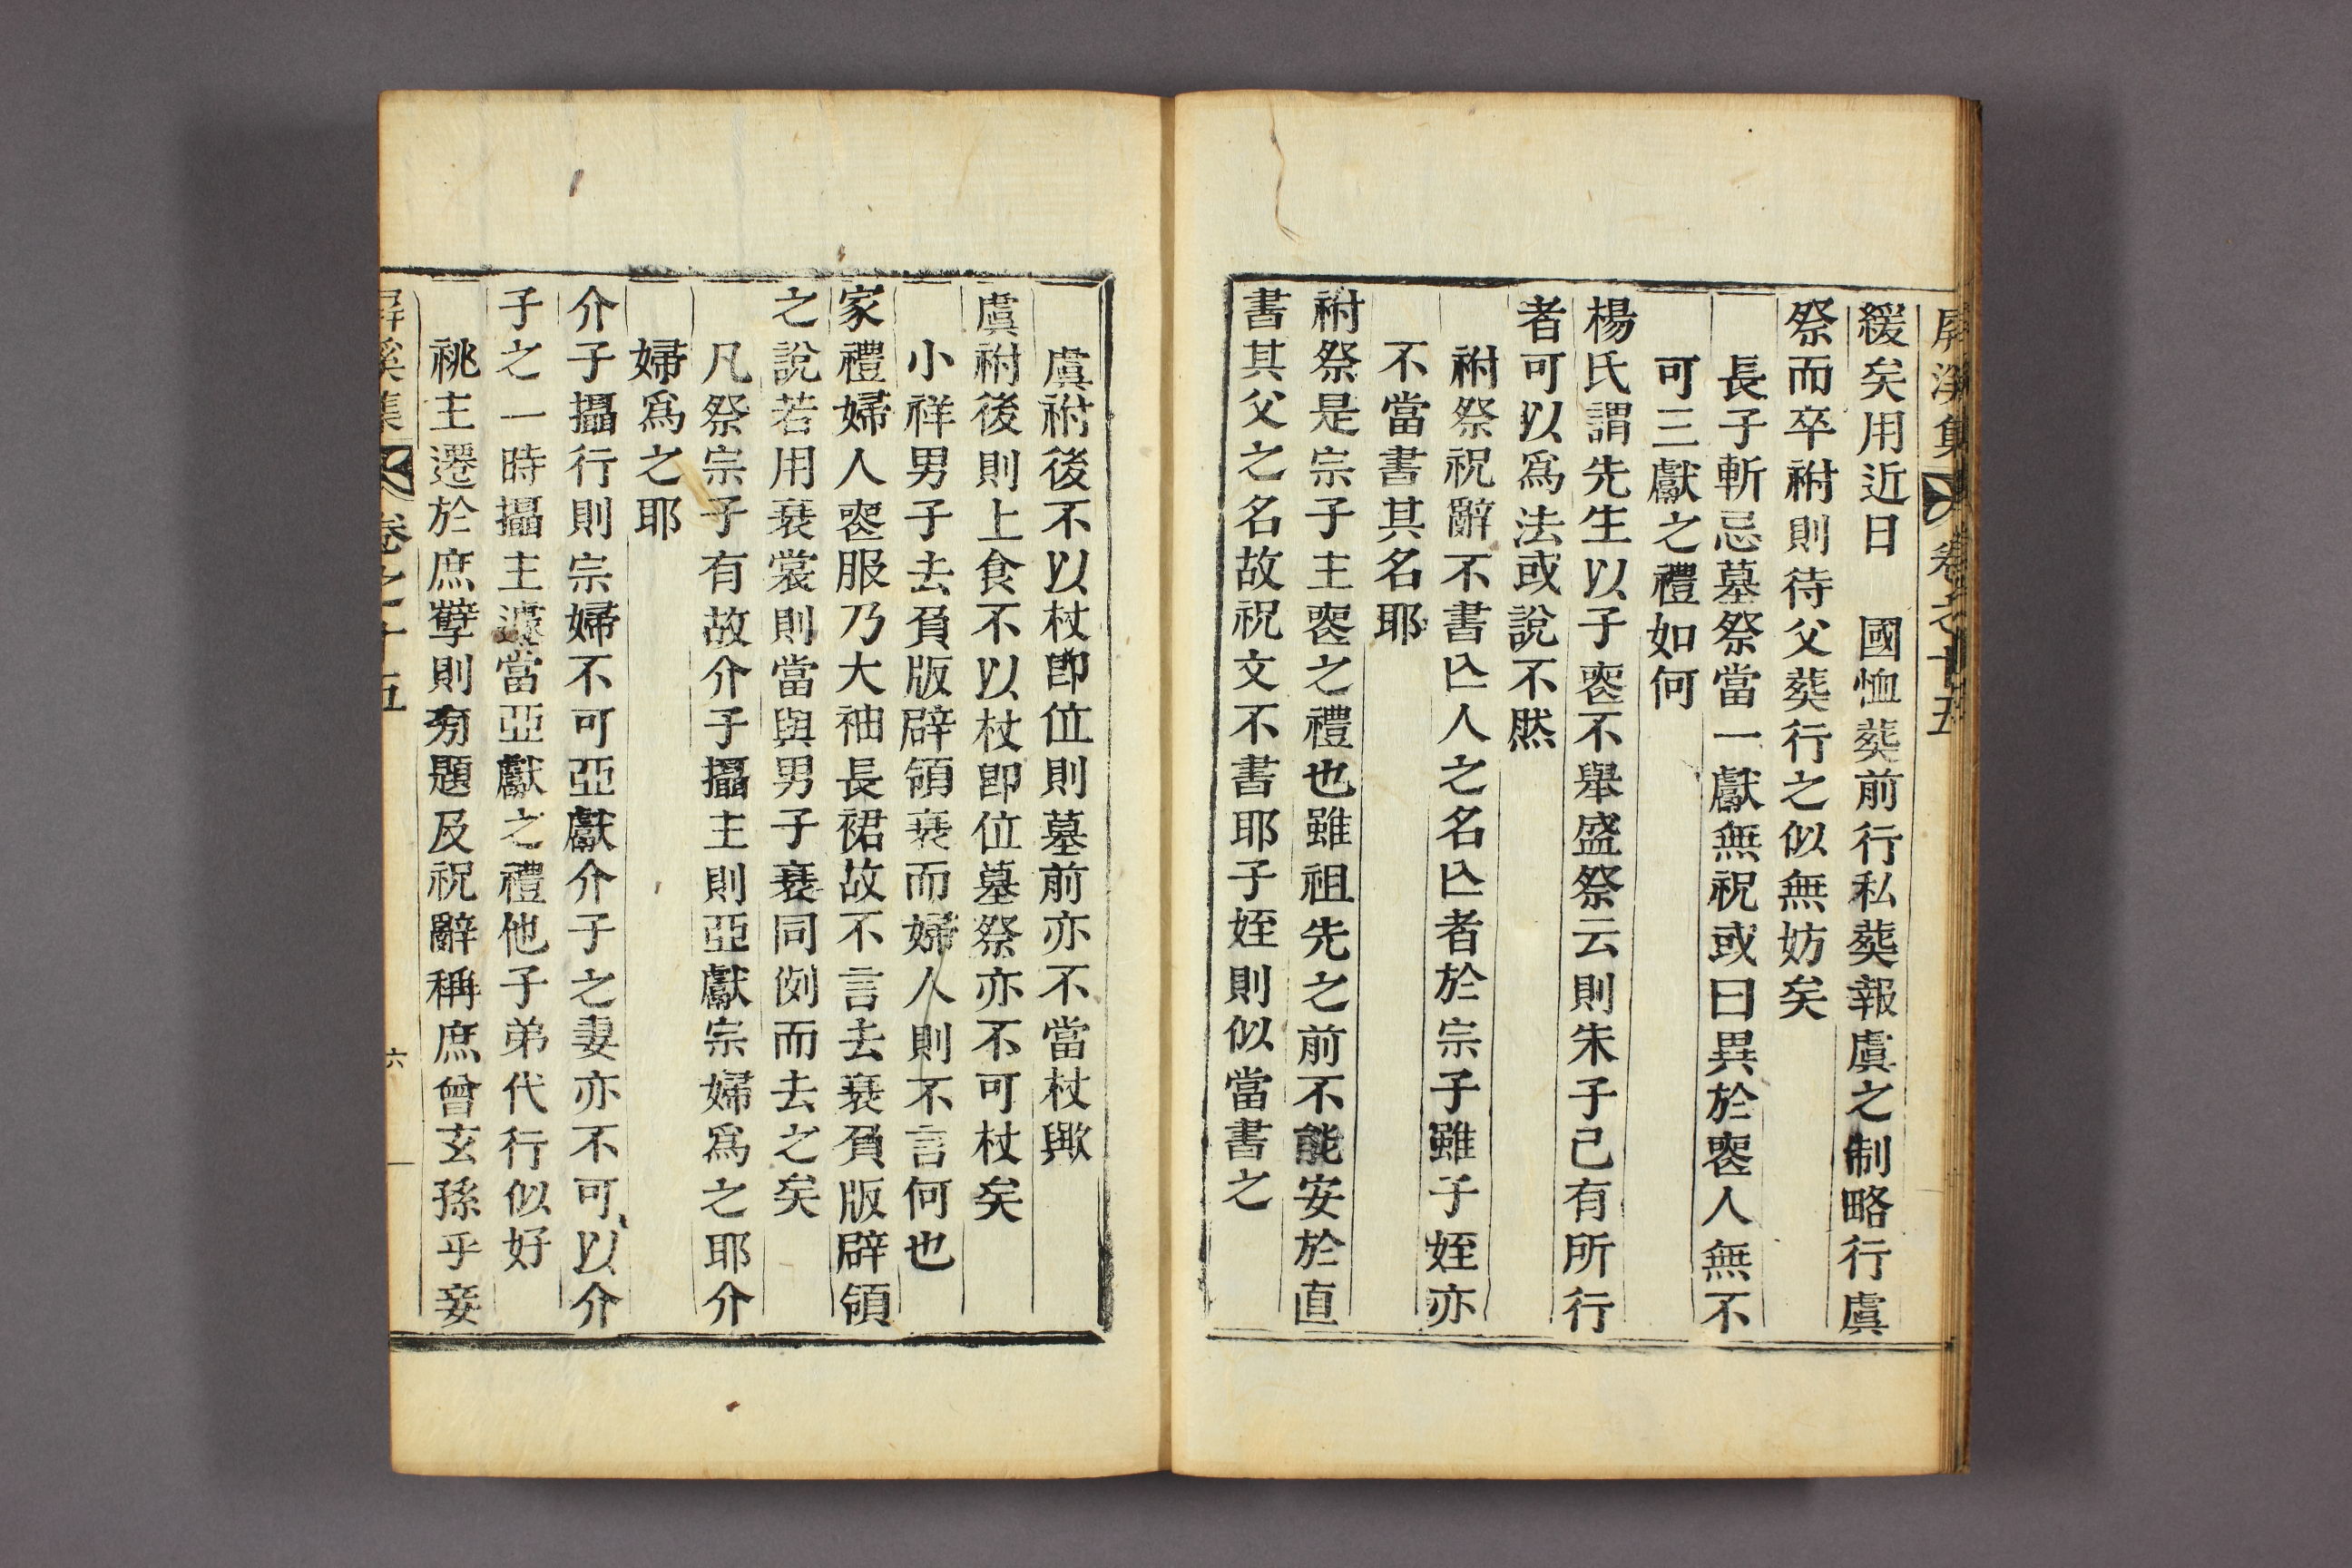 屛溪集 卷之十五
緩矣用近日 國恤葬前行私葬報虞之制略行虞
祭而卒祔則待父葬行之似無妨矣
長子斬忌墓祭當一獻無祝或曰異於喪人無不
可三獻之禮如何
楊氏謂先生以子喪不舉盛祭云則朱子已有所行
者可以爲法或說不然
祔祭祝辭不書亾人之名亾者於宗子雖子姪亦
不當書其名耶
祔祭是宗子主喪之禮也雖祖先之前不能安於直
書其父之名故祝文不書耶子姪則似當書之
虞祔後不以杖卽位則墓前亦不當杖歟
虞祔後則上食不以杖卽位墓祭亦不可杖矣
小祥男子去負版辟領衰而婦人則不言何也
家禮婦人喪服乃大袖長裙故不言去衰負版辟領
之說若用衰裳則當與男子衰同例而去之矣
凡祭宗子有故介子攝主則亞獻宗婦爲之耶介
婦爲之耶
介子攝行則宗婦不可亞獻介子之妻亦不可以介
子之一時攝主遽當亞獻之禮他子弟代行似好
祧主遷於庶孼則旁題及祝辭稱庶曾玄孫乎妾
屛溪集 卷之十五 六